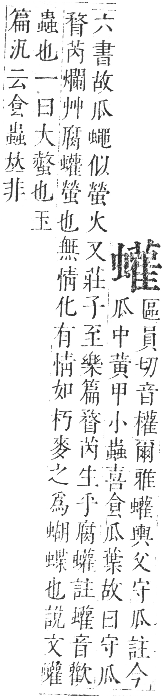 蠸
區員切音權爾雅蠸輿父守瓜註今
瓜中黃甲小蟲喜食瓜葉故曰守瓜
六書故瓜蠅似螢火又莊子至樂篇瞀芮生乎腐蠸註蠸音歡
瞀芮爛艸腐蠸螢也無情化有情如朽麥之爲蝴蝶也說文蠸
蟲也一曰大螫也玉
篇汎云食蟲𠀤非